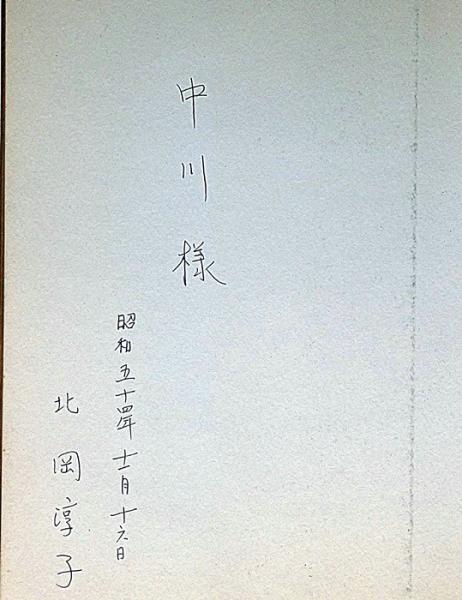 中川様
昭和五十四年十一月十六日
北岡淳子